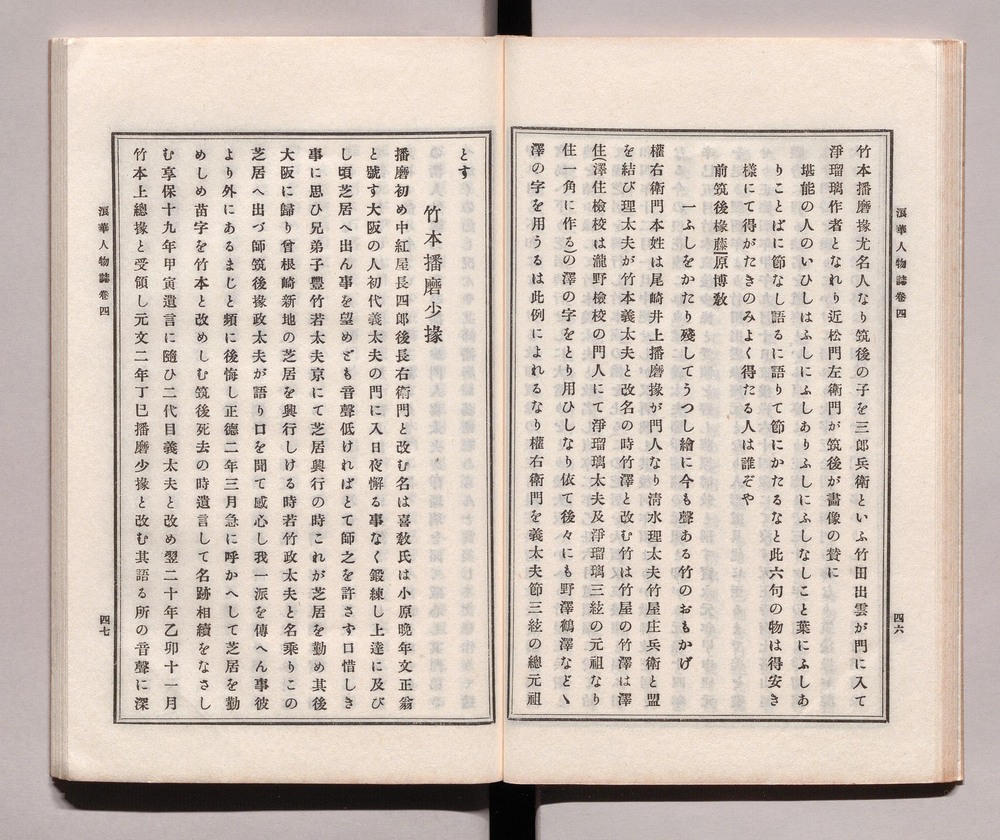 浪華人物誌卷四
四六
竹本播磨掾尤名人なり筑後の子を三郎兵衛といふ竹田出雲が門に入て
淨瑠璃作者となれり近松門左衛門が筑後が畵像の賛に
堪能の人のいひしはふしにふしありふしにふしなしこと葉にふしあ
りことばに節なし語るに語りて節にかたるなと此六句の物は得安き
樣にて得がたきのみよく得たる人は誰ぞや
前筑後掾藤原博敎
一ふしをかたり殘してうつし繪に今も聲ある竹のおもかげ
權右衛門本姓は尾崎井上播磨掾が門人なり淸水理太夫竹屋庄兵衛と盟
を結び理太夫が竹本義太夫と改名の時竹澤と改む竹は竹屋の竹澤は澤
住(澤住檢校は瀧野檢校の門人にて淨瑠璃太夫及淨瑠璃三絃の元祖なり
住一角に作る)の澤の字をとり用ひしなり依て後々にも野澤鶴澤など丶
澤の字を用うるは此例によれるなり權右衛門を義太夫節三絃の總元祖
とす
竹本播磨少掾
播磨初め中紅屋長四郎後長右衛門と改む名は喜敎氏は小原晩年文正翁
と號す大阪の人初代義太夫の門に入日夜懈る事なく鍛練し上達に及び
し頃芝居へ出ん事を望めども音聲低ければとて師之を許さず口惜しき
事に思ひ兄弟子豊竹若太夫京にて芝居興行の時これが芝居を勤め其後
大阪に歸り曾根崎新地の芝居を興行しける時若竹政太夫と名乘りこの
芝居へ出づ師筑後掾政太夫が語り口を聞て感心し我一派を傳へん事彼
より外にあるまじと頻に後悔し正德二年三月急に呼かへして芝居を勤
めしめ苗字を竹本と改めしむ筑後死去の時遺言して名跡相續をなさし
む享保十九年甲寅遺言に隨ひ二代目義太夫と改め翌二十年乙卯十一月
竹本上總掾と受領し元文二年丁巳播磨少掾と改む其語る所の音聲に深
浪華人物誌卷四
四七